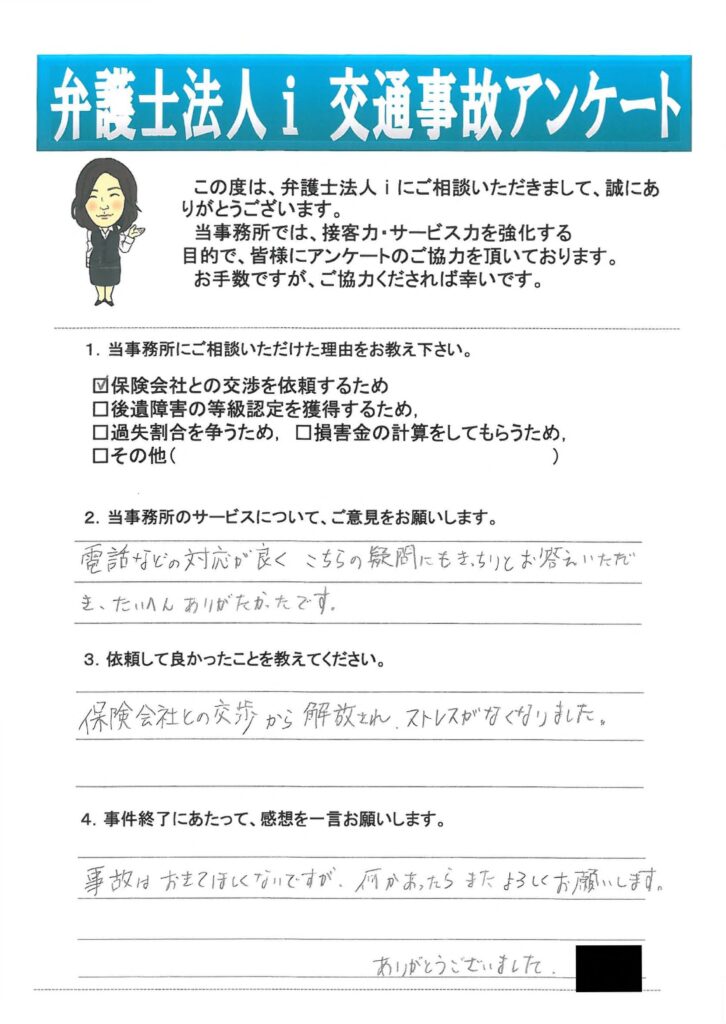 弁護士法人ｉ 交通事故アンケート
この度は、弁護士法人ｉにご相談いただきまして、誠にあ
りがとうございます。
当事務所では、接客力・サービス力を強化する
目的で、皆様にアンケートのご協力を頂いております。
お手数ですが、ご協力くだされば幸いです。
１．当事務所にご相談いただけた理由をお教え下さい。
☑保険会社との交渉を依頼するため
□後遺障害の等級認定を獲得するため，
□過失割合を争うため， □損害金の計算をしてもらうため，
□その他（ ）
２．当事務所のサービスについて、ご意見をお願いします。
電話などの対応が良く こちらの疑問にもきっちりとお答えいただ
き、たいへんありがたかったです。
３．依頼して良かったことを教えてください。
保険会社との交歩から解放され、ストレスがなくなりました。
４．事件終了にあたって、感想を一言お願いします。
事故はおきてほしくないですが、何かあったらまたよろしくお願いします。
ありがとうございました．